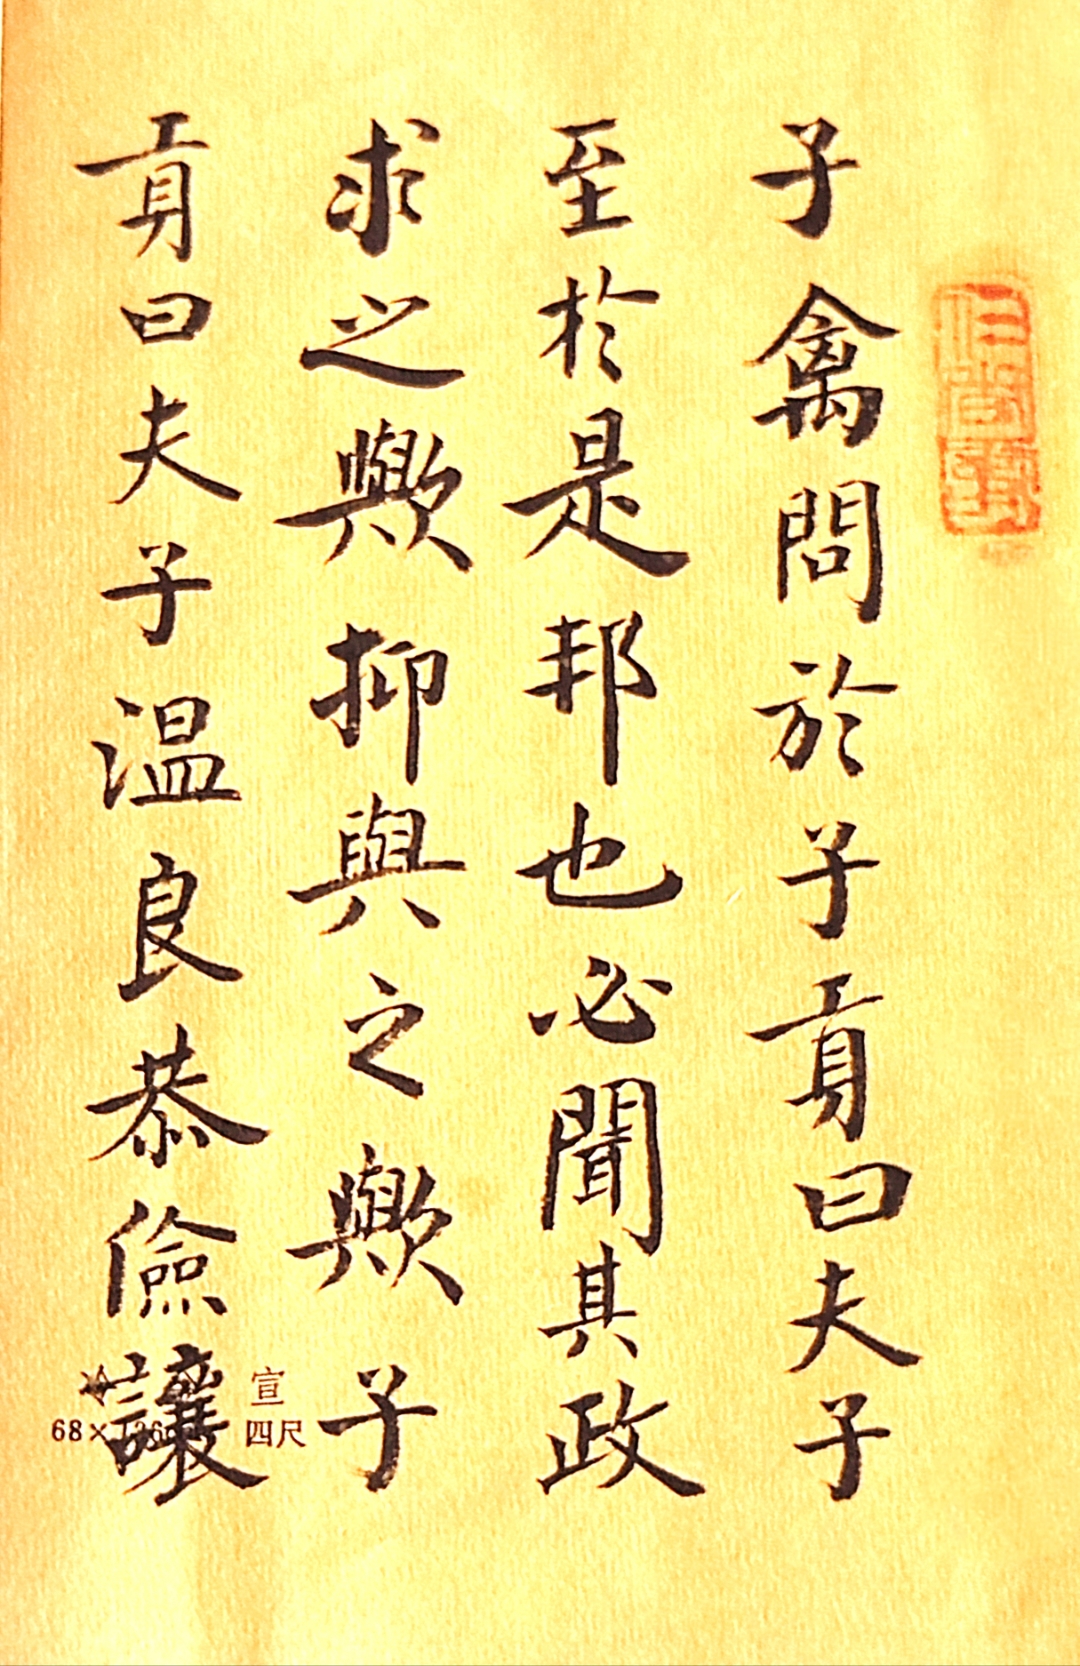 子禽問於子貢曰夫子
至於是邦也必聞其政
求之歟抑與之歟子
貢曰夫子温良恭儉讓
宣
68× 四尺